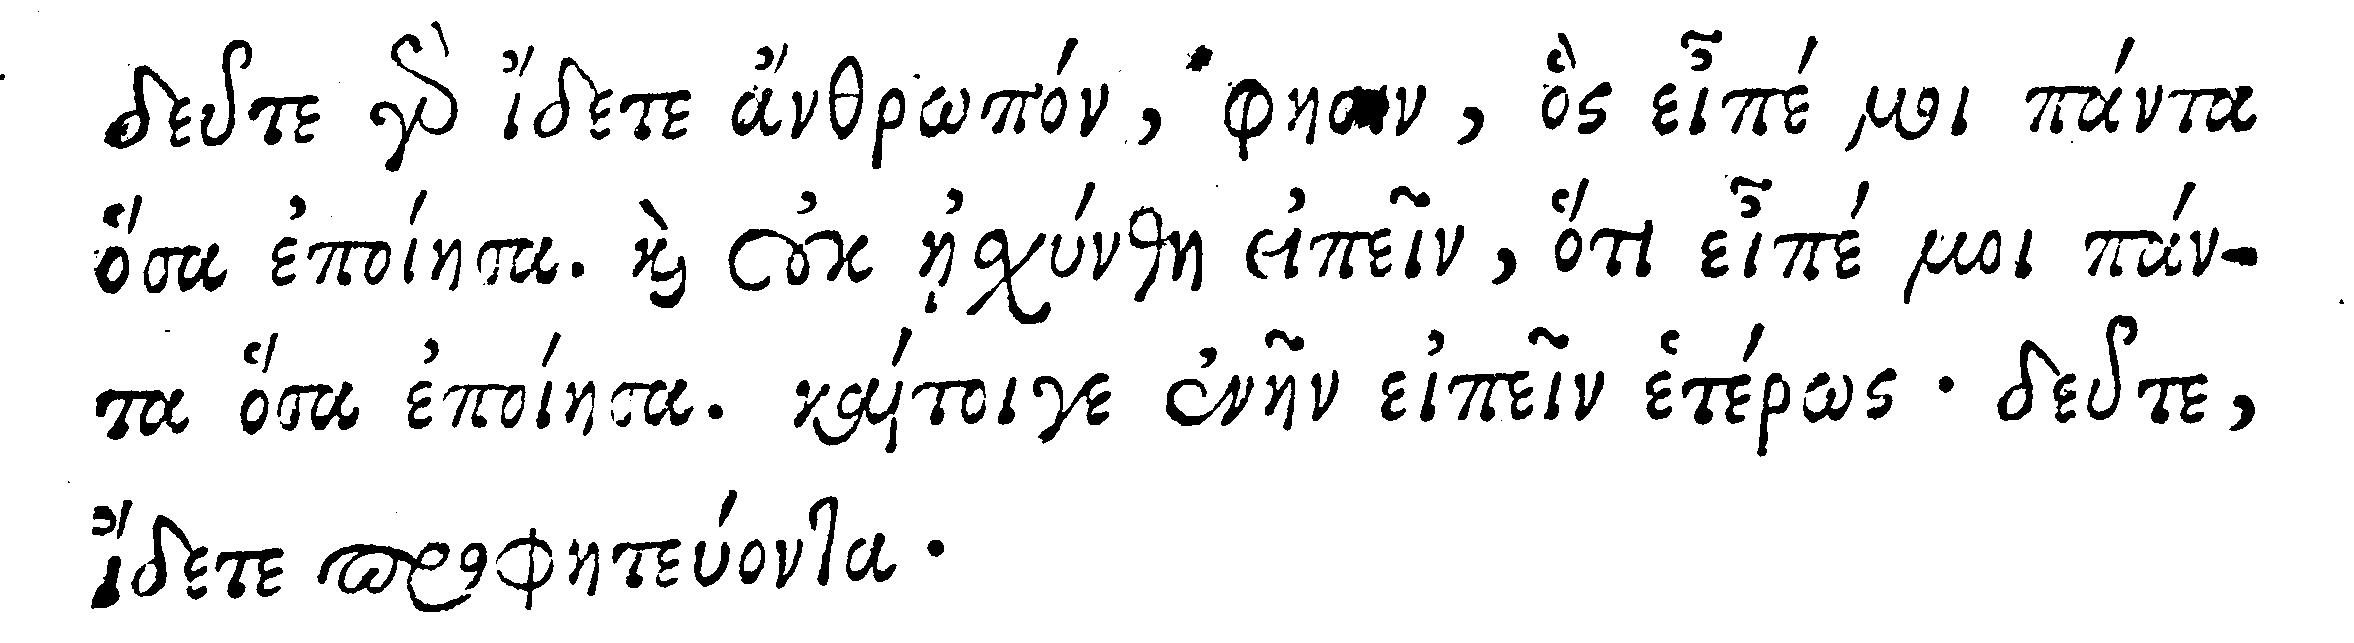 δεῦτε γὰρ ἴδετε ἄνθρωπόν, φησιν, ὃς εἶπέ μοι πάντα
ὅσα ἐποίησα. καὶ οὐκ ᾐσχύνθη εἰπεῖν, ὅτι εἶπέ μοι πάν-
τα ὅσα ἐποίησα. καίτοιγε ἐνῆν εἰπεῖν ἑτέρως · δεῦτε,
ἴδετε προφητεύοντα ·